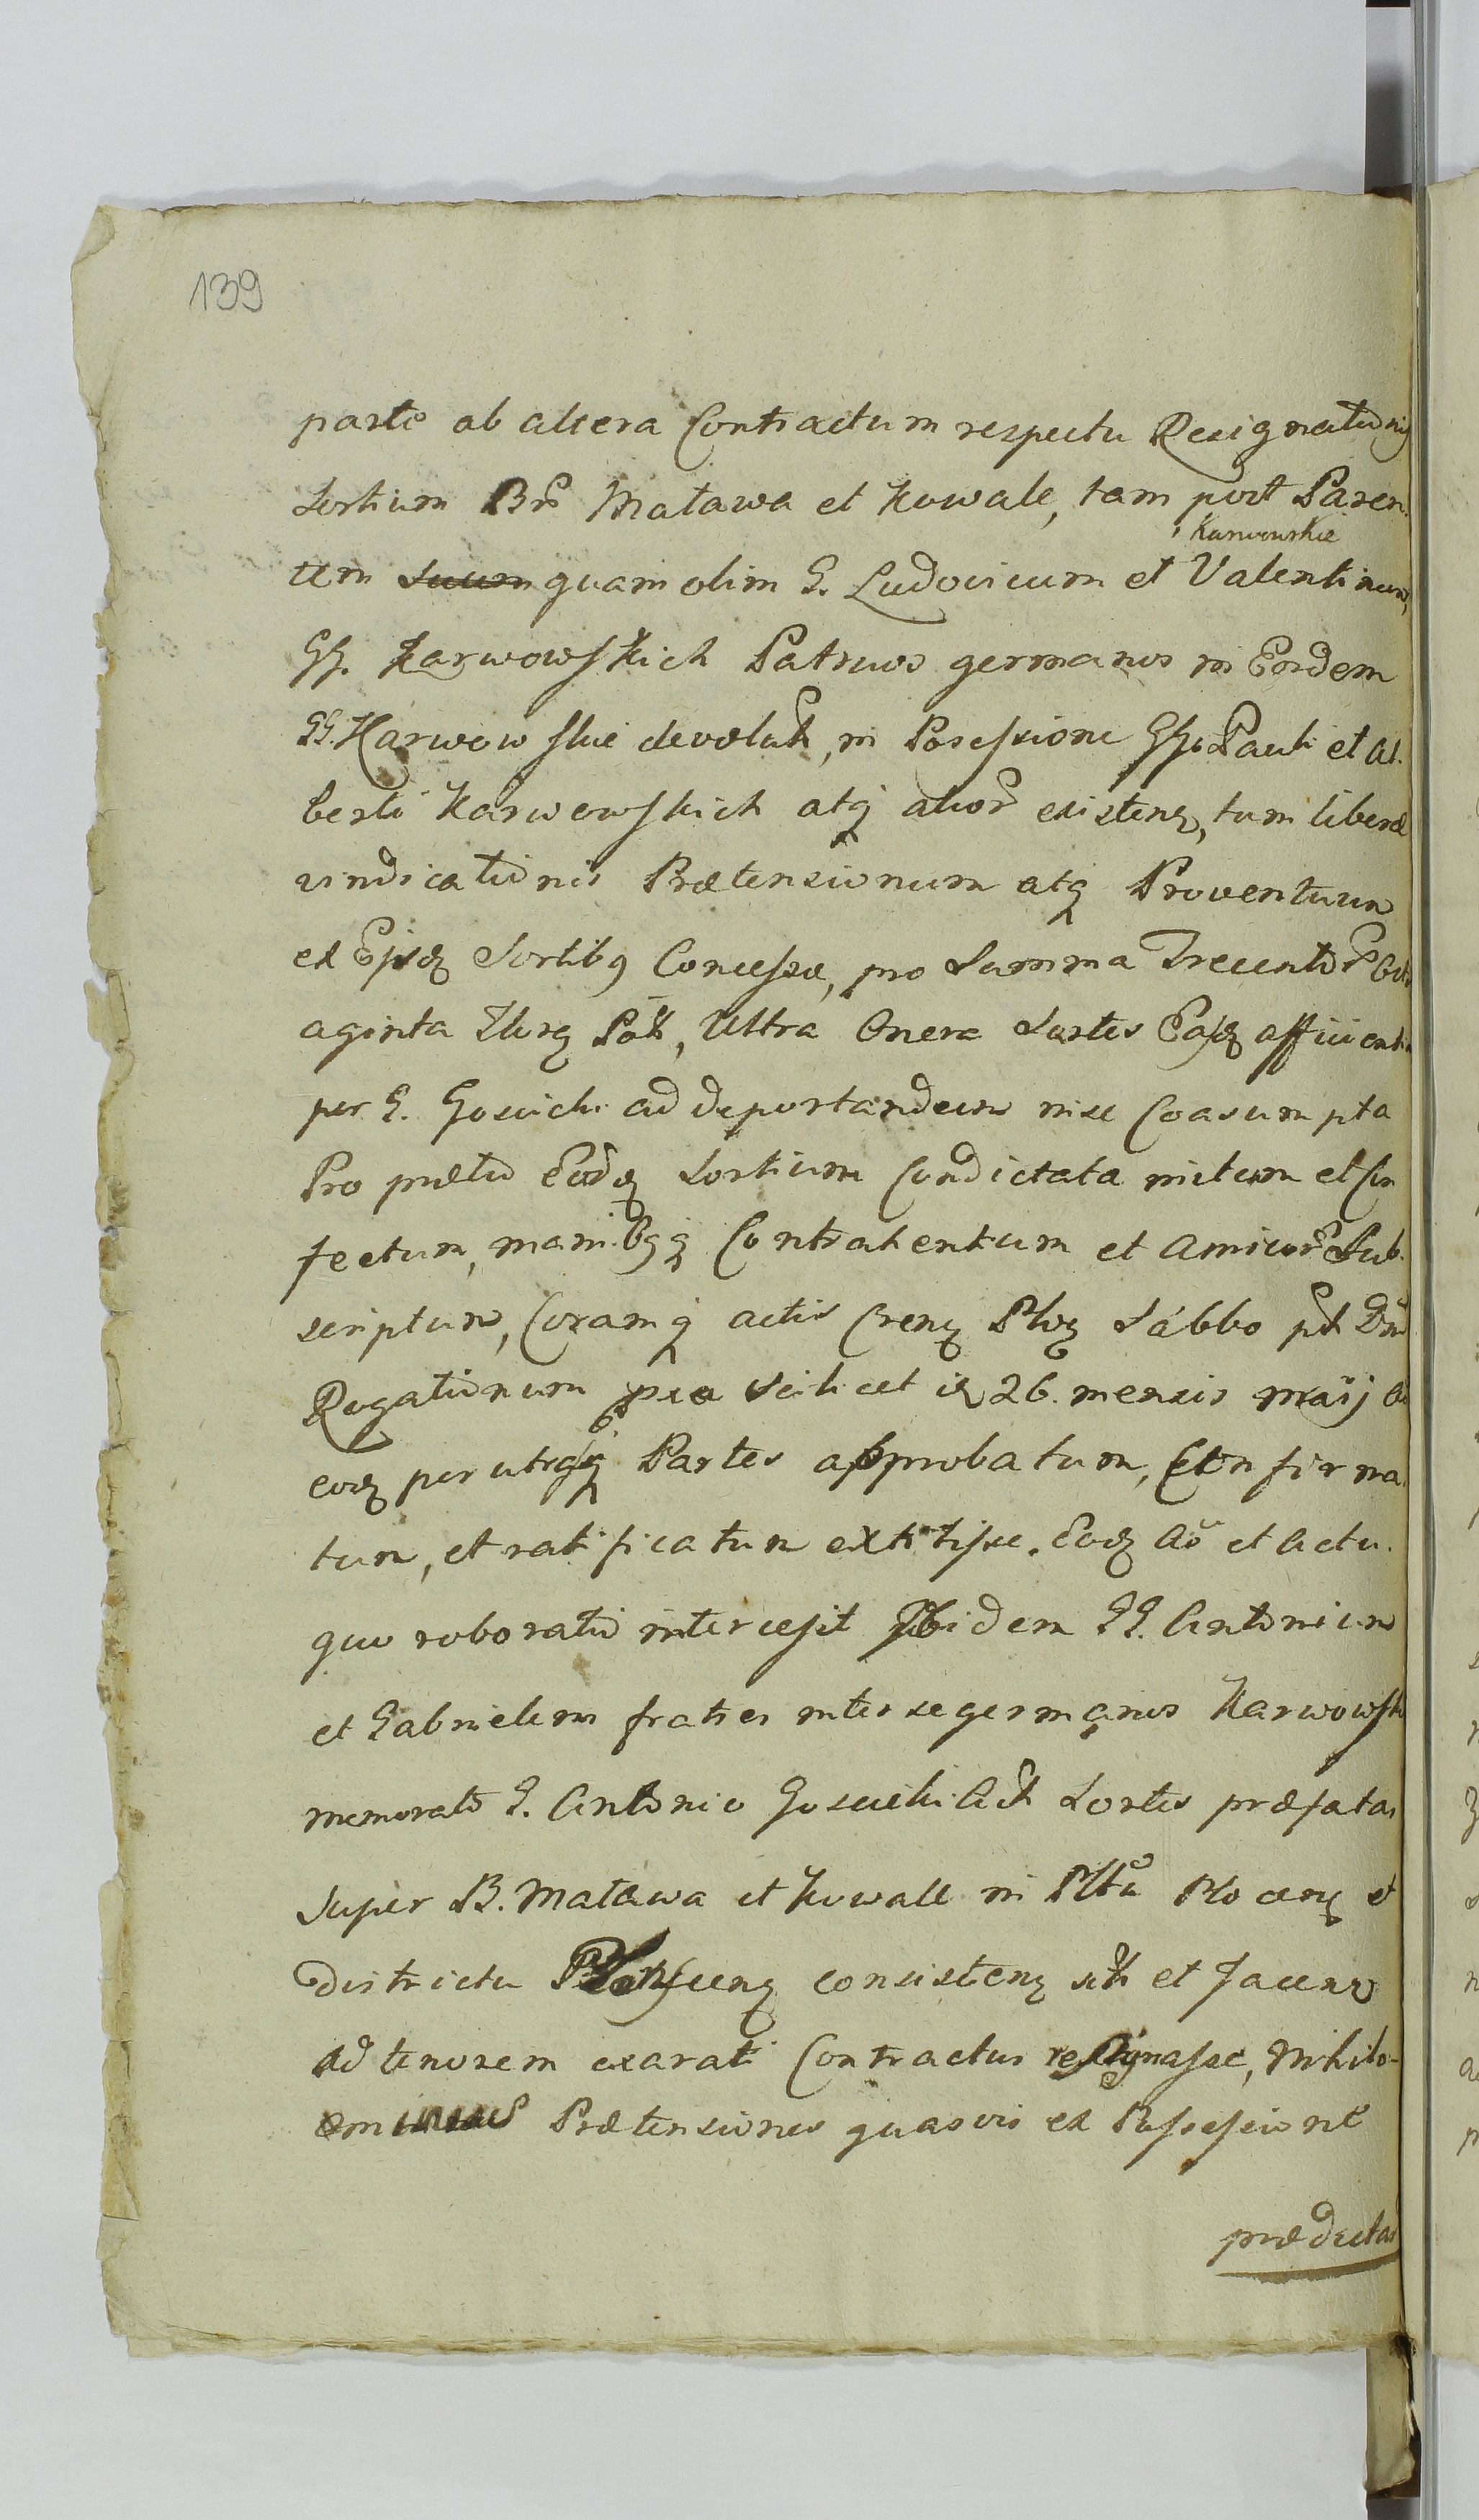 139
parte ab altera Contractum respectu Resignationis
Sortium Br Matawa et Kowale, tam post Paren
Karwowskie
tem suum quam olim G. Ludovicum et Valentinum,
GG. Karwowskich Patruos germanos in Eosdem
GG. Karwowskie devolut, in Possessione GG. Pauli et Al.
berti Karwowskich atq alior existenq, tum liberæ
vindicationis Prætensionum atq Proventuum
ex Eisdq Sortibq Concessæ, pro Summa Trecentor Octu
aginta Florq Pol, Ultra Onera Sortes Easdq afficientia
per G. Goscicki ad deportandum in se Coasumpta
Pro pretio Earodq Sortium Condictata initum et Con
fectum, manibqq Contrahentium et Amicor Sub.
scriptum, Coramq actis Crenq Plocq Sabbo pt Dni
Rogationum pro scilicet iq 26. mensis maij A
eodq per utrasqq Partes approbatum, Confirma
tum, et ratificatum extitisse. Eodq Aō et Actu.
quo roboratio intercesit Ibidem GG. Antonium
et Gabrielem fratres inter se germanos Karwowski
memorato G. Antonio Goscicki Act Sortes præfatas
super B. Matawa et Kowale in Pltū Plocenq et
districtu Plonscenq consistenq sit et Jacen
ad tenorem exarati Contractus resignasse, Nihilo-
ominus Prætensiones quasvis ex Possessione
prædictar